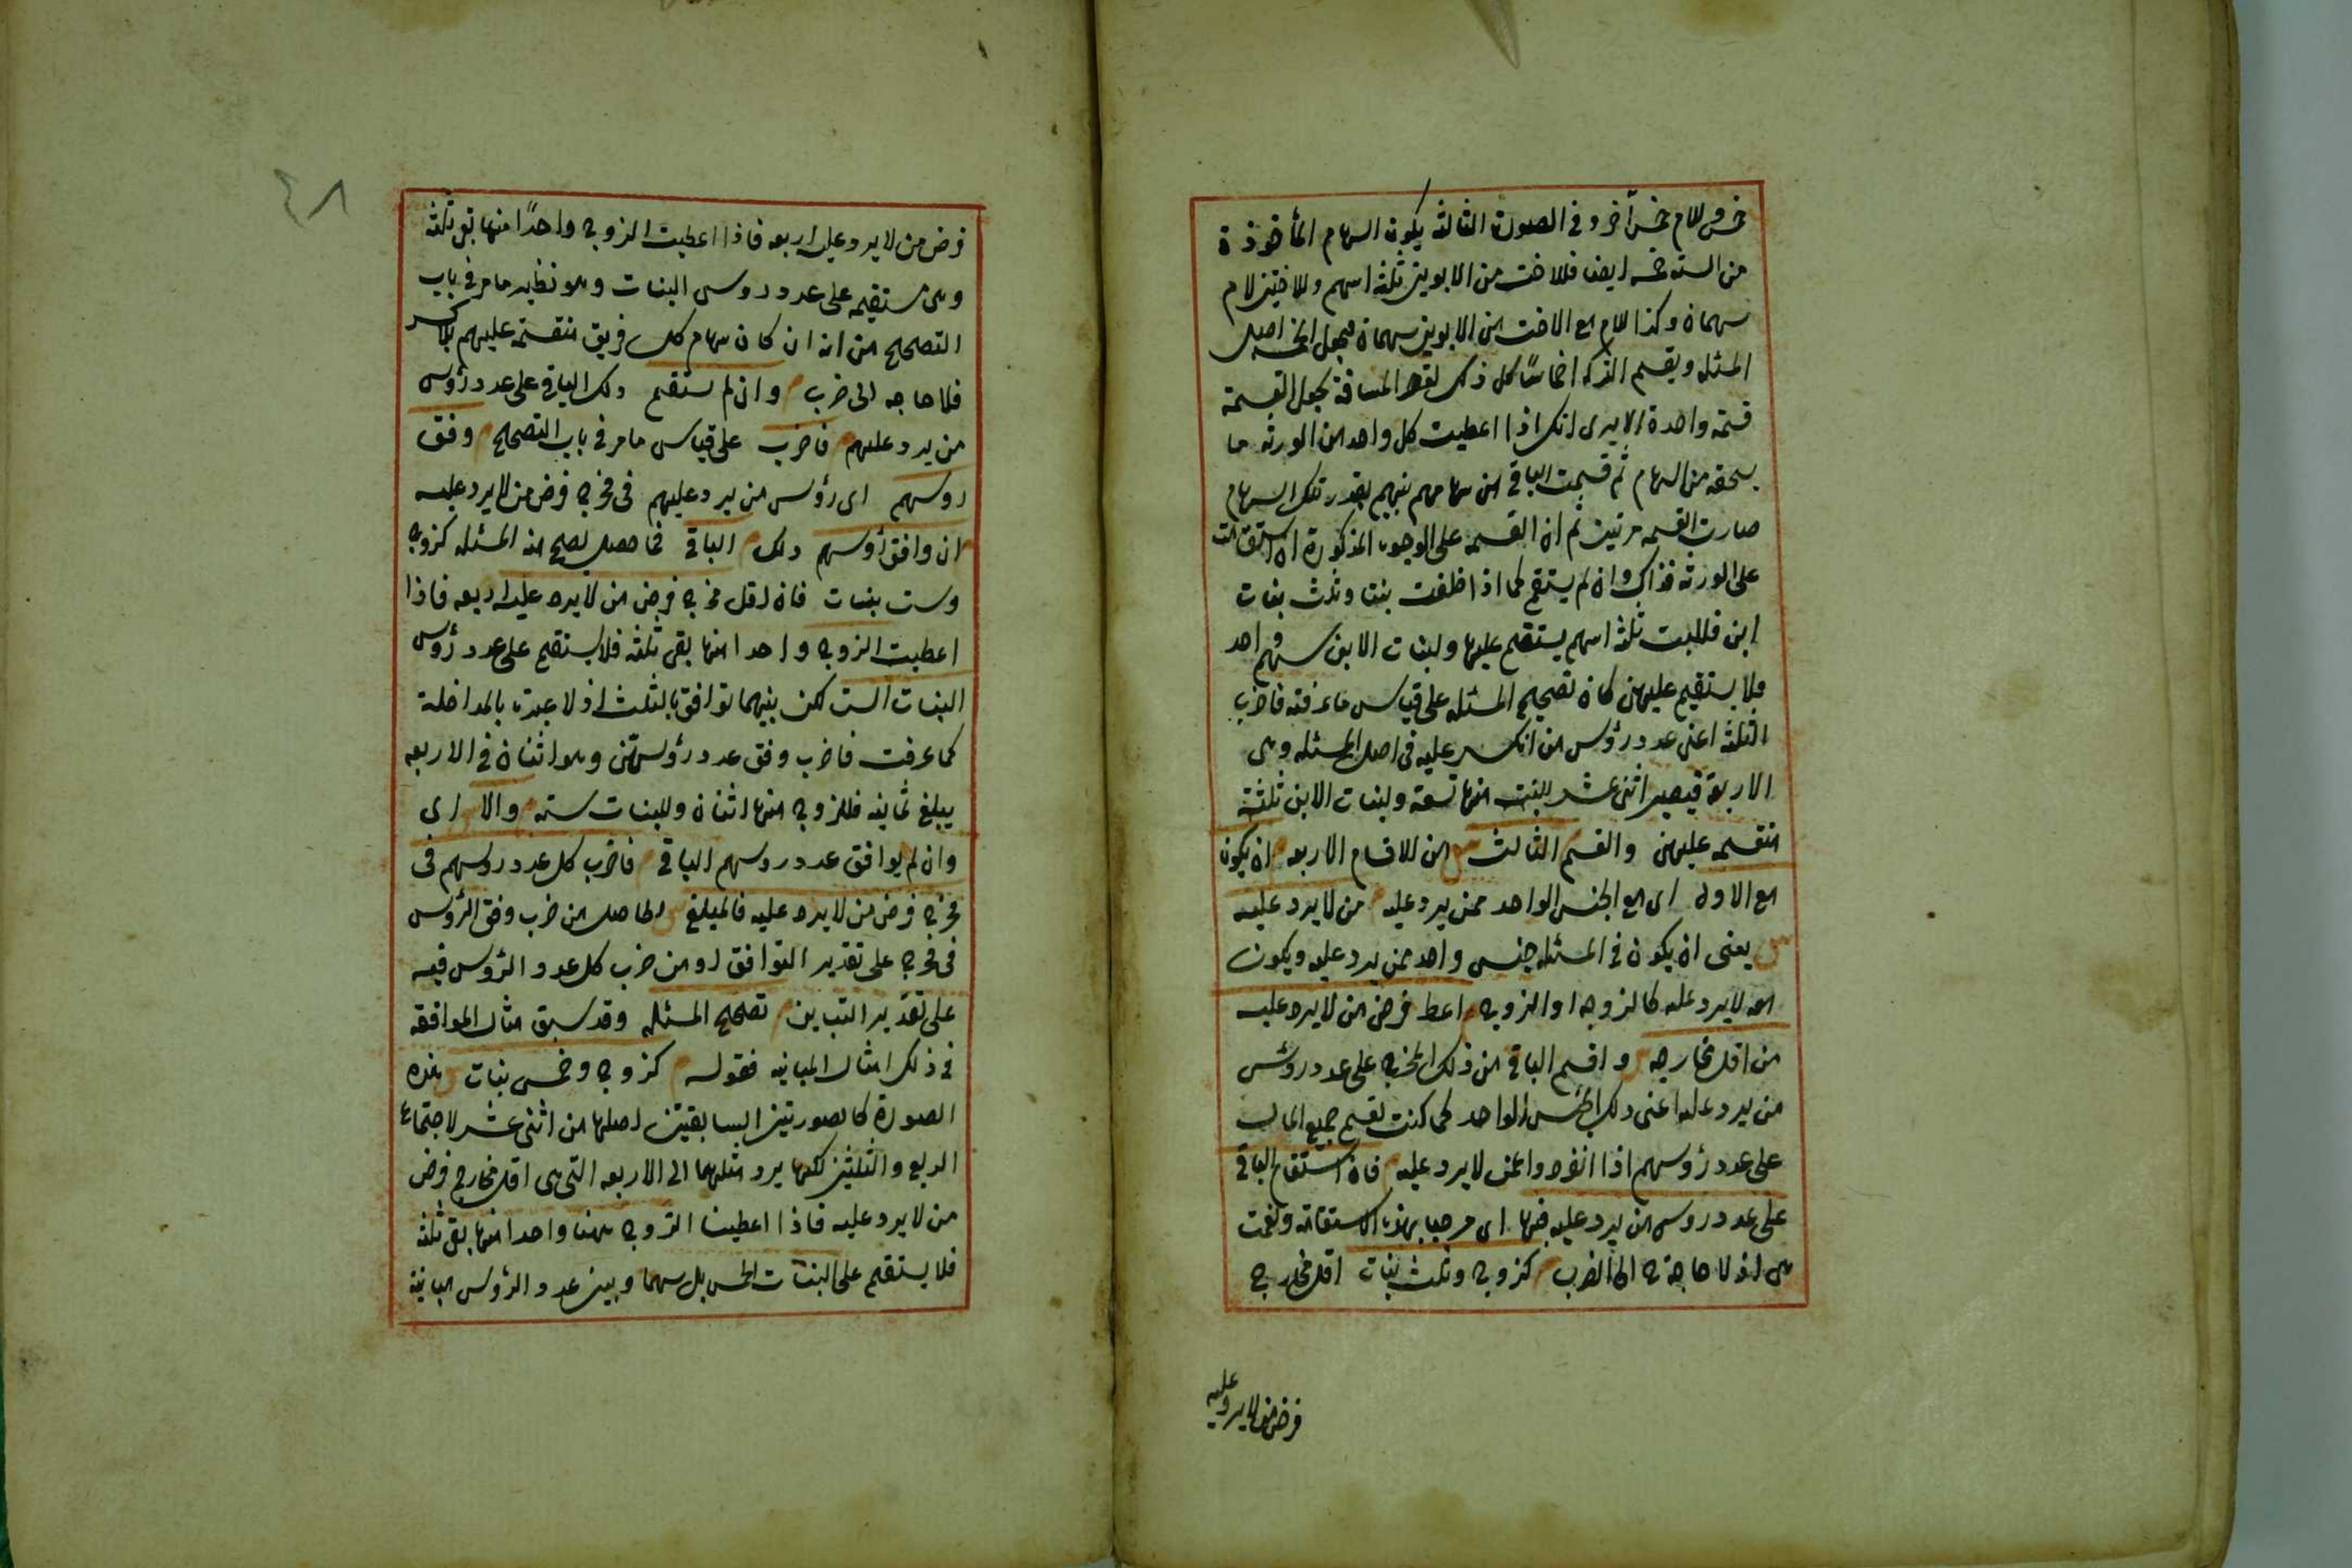 خمس وللام خمس آخر و فى الصورة الثالثة يكون السهام المأخوذة
من الستة خمسه ايضا فللاخت من الابوين ثلثة اسهم وللاختين لام
سهمان وكذا للام مع الاخت من الابوين سهمان فيجعل الخمسه اصل
المسئله ويقسم التركه اخماسًا كل ذلك لقصر المسافة بجعل القسمة
قسمة واحدة الا يرى انك اذا اعطيت كل واحد من الورثه ما
يستحقه من السهام ثم قسمت الباقى من سهامهم بينهم بقدر تلك السهام
صارت القسمه مرتين ثم ان القسمه على الوجوه المذكورة ان استقامت
على الورثه فذاك وان لم يستقم كما اذا خلفت بنتا وثلث بنات
ابن فللبنت ثلثة اسهم يستقيم عليها ولبنات الابن سهم واحد
ولا يستقيم عليهن كان تصحيح المسئله على قياس ما عرفته فاضرب
الثلثة اعنى عدد رؤس من انكسر عليه فى اصل المسئله وهى
الاربعة فيصير اثنى عشر للبنت منها تسعة ولبنات الابن ثلثة
منقسمه عليهن والقسم الثالث من الاقسام الاربعه ان يكون
مع الاول اى مع الجنس الواحد ممن يرد عليه من لا يرد عليه
يعنى ان يكون فى المسئله جنس واحد ممن يرد عليه ويكون
معه لا يرد عليه كالزوجه او الزوج اعط فرض من لا يرد عليه
من اقل مخارجه و اقسم الباقى من ذلك المخرج على عدد رؤس
من يرد عليه اعنى ذلك الجنس الواحد كما كنت تقسم جميع المال
على عدد رؤسهم اذا انفردوا عمن لا يرد عليه فان استقام الباقى
على عدد روس من يرد عليه فبها اى مرحبا بهذه الاستقامة ونعمت
هى اذ لا حاجة ح الى الضرب كزوج وثلث بنات اقل مخارج
فرض من لا يرد عليه
٤٨
فرض من لا يرد عليه اربعه فاذا اعطيت الزوج واحدًا منها بقى ثلثة
وهى مستقيمه على عدد روس البنات وهو نظير ما مر فى باب
التصحيح من انه ان كان سهام كل فريق منقسمة عليهم بلا كسر
فلا حاجه الى ضرب وان لم يستقم ذلك الباقى على عدد رؤس
من يرد عليهم فاضرب على قياس ما مر فى باب التصحيح وفق
روسهم اى رؤس من يرد عليهم فى مخرج فرض من لا يرد عليه
ان وافق رؤسهم ذلك الباقى فما حصل تصح منه المسئله كزوج
وست بنات فان اقل مخرج فرض من لا يرد عليه اربعه فاذا
اعطيت الزوج واحدا منها بقى ثلثة فلا يستقيم على عدد رؤس
البنات الست لكن بينهما توافق بالثلث اذ لا عبرة بالمداخلة
كما عرفت فاضرب وفق عدد رؤسهن وهو اثنان فى الاربعه
يبلغ ثمانيه فللزوج منها اثنان وللبنات سته والا اى
وان لم يوافق عدد روسهم الباقى فاضرب كل عدد روسهم فى
مخرج فرض من لا يرد عليه فالمبلغ الحاصل من ضرب وفق الرؤس
فى مخرج على تقدير التوافق او من ضرب كل عدد الرؤس فيه
على تقدير التباين تصحيح المسئله وقد سبق مثال الموافقه
فى ذلك امثال المباينه فقوله كزوج وخمس بنات هذه
الصورة كالصورتين السابقتين اصلها من اثنى عشر لاجتماع
الربع والثلثين لكنها يرد مثلهما الى الاربعه التى هى اقل مخارج فرض
من لا يرد عليه فاذا اعطينا الزوج ههنا واحدا منها بقى ثلثة
فلا يستقيم على البنات الخمس بل سهما وبين عدد الرؤس مباينة